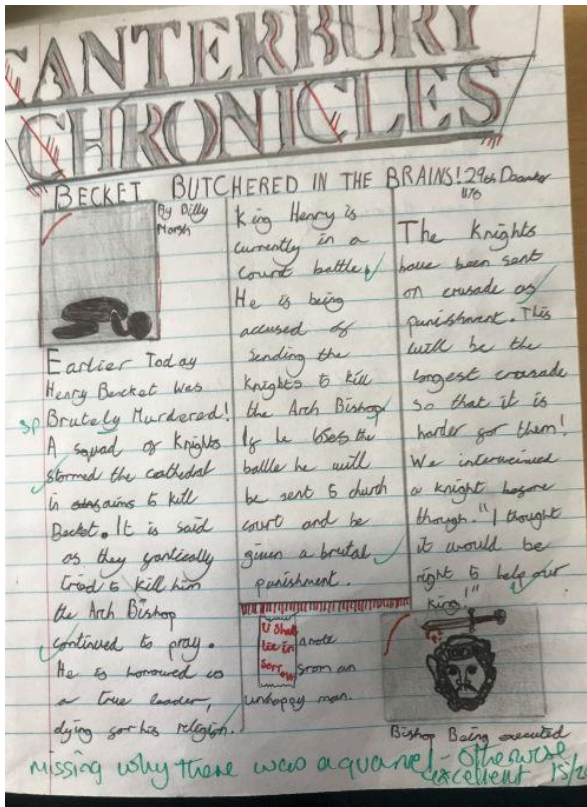 CANTERBURY
CHRONICLES
BECKET BUTCHERED IN THE BRAINS! 29th December
1170
By Billy
Marsh
Earlier Today
Henry Becket was
sp Brutely Murdered!
A squad of Knights
stormed the cathedral
in aims to kill
Becket. It is said
as they frantically
tried to kill him
the Arch Bishop
continued to pray.
He is honoured as
a true leader,
dying for his religion.
King Henry is
currently in a
court battle.
He is being
accused of
sending the
knights to kill
the Arch Bishop
If he loses the
battle he will
be sent to church
court and be
given a brutal
punishment.
U Shall
lie in
Sorrow
a note
from an
unhappy man.
The Knights
have been sent
on crusade as
punishment. This
will be the
longest crusade
so that it is
harder for them!
We interveiwed
a knight before
though. "I thought
it would be
right to help our
king!"
Bishop Being executed
missing why there was a quarrel - otherwise
excellent 15/20